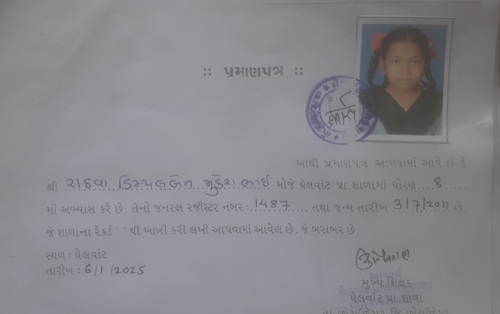 :: પ્રમાણપત્ર ::
આથી પ્રમાણપત્ર આપવામાં આવે છે કે
શ્રી રાઠવા ડિમ્પલબેન મુકેશભાઇ મોજે ઘેલવાંટ પ્રા.શાળામાં ધોરણ 8
માં અભ્યાસ કરે છે. તેનો જનરલ રજીસ્ટર નંબર : 1487 તથા જન્મ તારીખ 3/7/2011 છે
જે શાળાના રેકર્ડ થી ખાત્રી કરી લખી આપવામાં આવેલ છે. જે બરાબર છે.
સ્થળ : ઘેલવાંટ
તારીખ : 6/1/2025
મુખ્ય શિક્ષક
ઘેલવાંટ પ્રા.શાળા